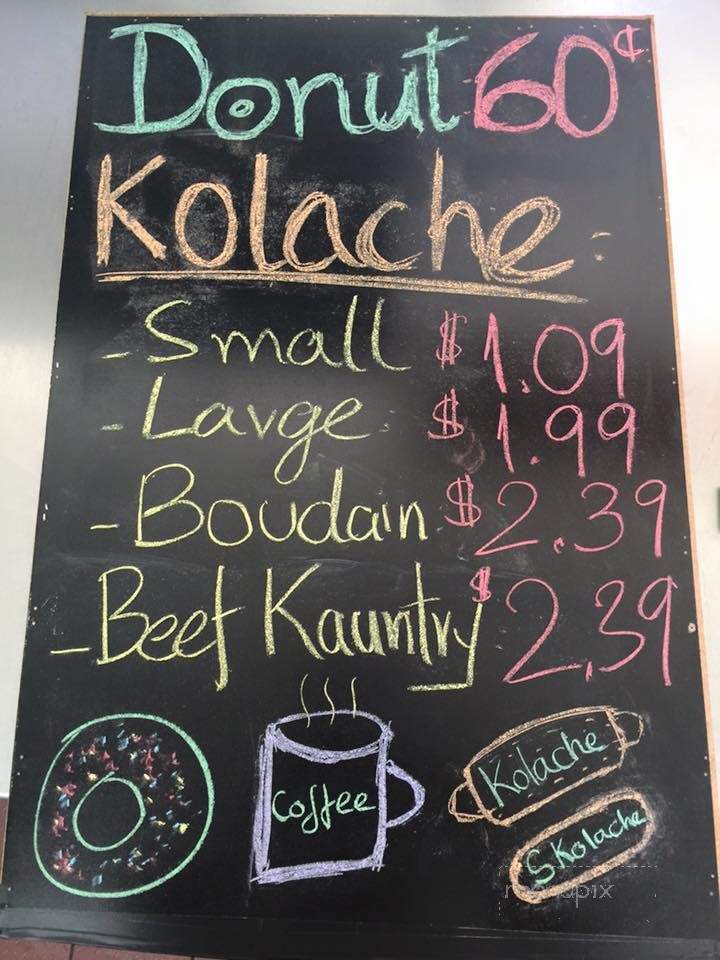 Donut 60¢
Kolache:
- Small $1.09
- Large $1.99
- Boudain $2.39
- Beef Kauntry $2,39
Coffee
Kolache
S.Kolache